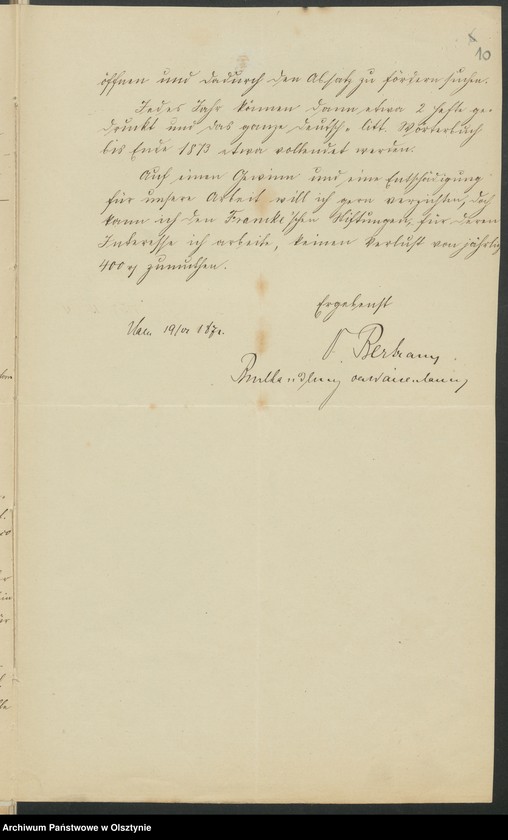 10
öffnen und dadurch den Absatz zu fördern suchen.
Jedes Jahr können dann etwa 2 Hefte ge-
druckt und das ganze deutsch-litt. Wörterbuch
bis Ende 1873 etwa vollendet werden.
Auf einen Gewinn und eine Entschädigung
für unsere Arbeit will ich gern verzichten, doch
kann ich den Francke'schen Stiftungen, für deren
Interesse ich arbeite, keinen Verlust von jährlich
400 zumuthen.
Ergebenst
Bertram
Archiwum Państwowe w Olsztynie